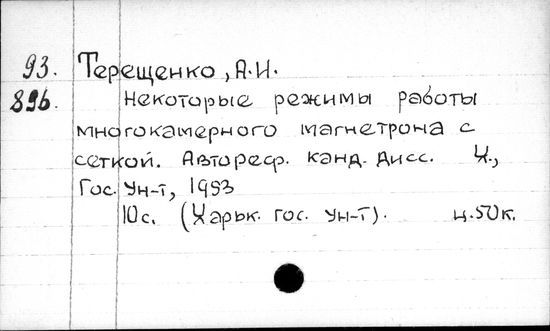 93. Терещенко, А.И.
896. Некоторые режимы работы
многокамерного магнетрона с
сеткой. Автореф. канд. дисс. Х.,
Гос. Ун-т, 1953
10с. (Харьк. гос. Ун-т). ц.50к.